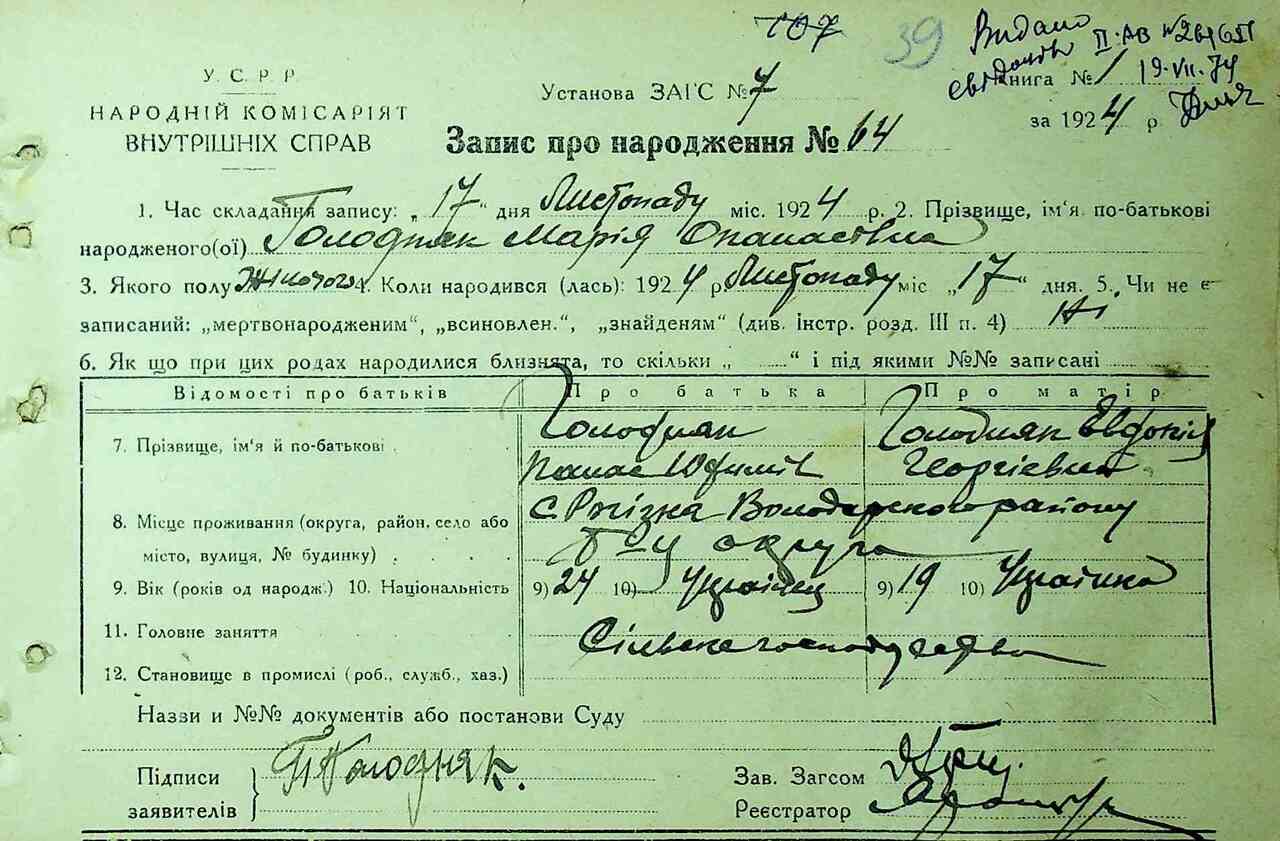 107
39
Видано
свідоцтво II-АВ №
19.VII.74
У.С.Р.Р
НАРОДНІЙ КОМІСАРІЯТ
ВНУТРІШНІХ СПРАВ
Установа ЗАГС № 7
Книга № 1
за 1924 р.
Запис про народження № 64
1. Час складання запису: „17“ дня Листопаду міс. 1924 р. 2. Прізвище, ім'я по-батькові
народженого(ої) Голодняк Марія Опанасівна
3. Якого полу Жіночого 4. Коли народився (лась): 1924 р. Листопаду міс „17“ дня. 5. Чи не є
записаний: „мертвонародженим“, „всиновлен.“, „знайденям“ (див. інстр. розд. III п. 4) Ні
6. Як що при цих родах народилися близнята, то скільки „ “ і під якими №№ записані
Відомості про батьків Про батька Про матір
7. Прізвище, ім'я й по-батькові Голодняк Голодняк Евдокія
Панас Юхимів Георгієвна
8. Місце проживання (округа, район, село або с. Рогізна Володарського району
місто, вулиця, № будинку) Б Ц округа
9. Вік (років од народж.) 10. Національність 9) 24 10) Українец 9) 19 10) Українка
11. Головне заняття Сільське господарство
12. Становище в промислі (роб., служб., хаз.)
Назви и №№ документів або постанови Суду
Підписи Голодняк.
заявителів
Зав. Загсом
Реєстратор